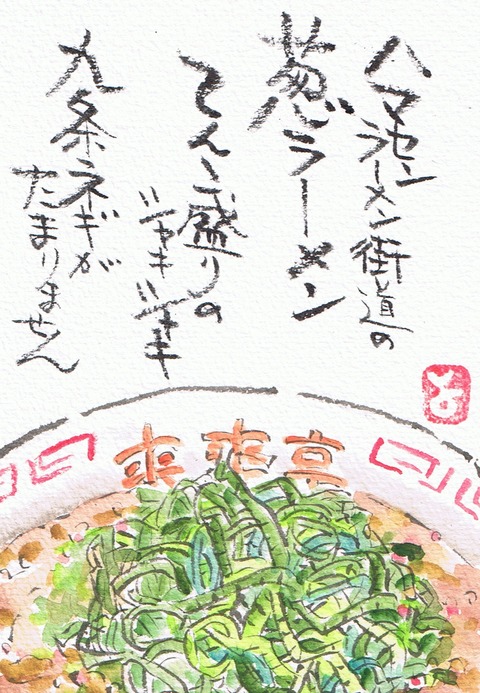 ハマセンラーメン街道の
葱ラーメン
てんこ盛りの
シャキシャキ
九条ネギが
たまりません
来来亭